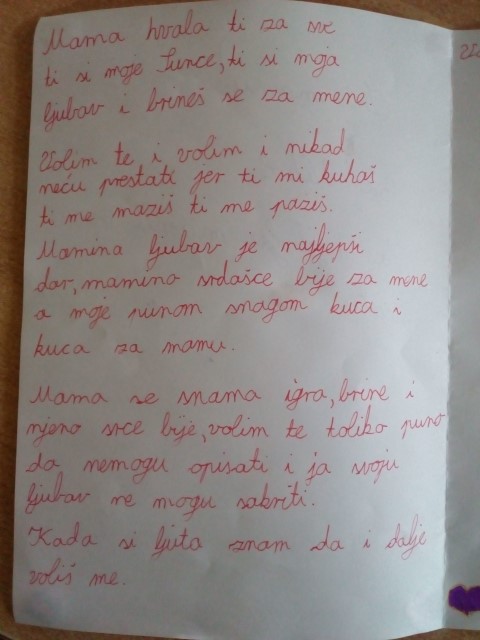 Mama hvala ti za sve
ti si moje Sunce, ti si moja
ljubav i brineš se za mene.
Volim te i volim i nikad
neću prestati jer ti mi kuhaš
ti me maziš ti me paziš.
Mamina ljubav je najljepši
dar, mamino srdašce bije za mene
a moje punom snagom kuca i
kuca za mamu.
Mama se snama igra, brine i
njeno srce bije, volim te toliko puno
da nemogu opisati i ja svoju
ljubav ne mogu sakriti.
Kada si ljuta znam da i dalje
voliš me.